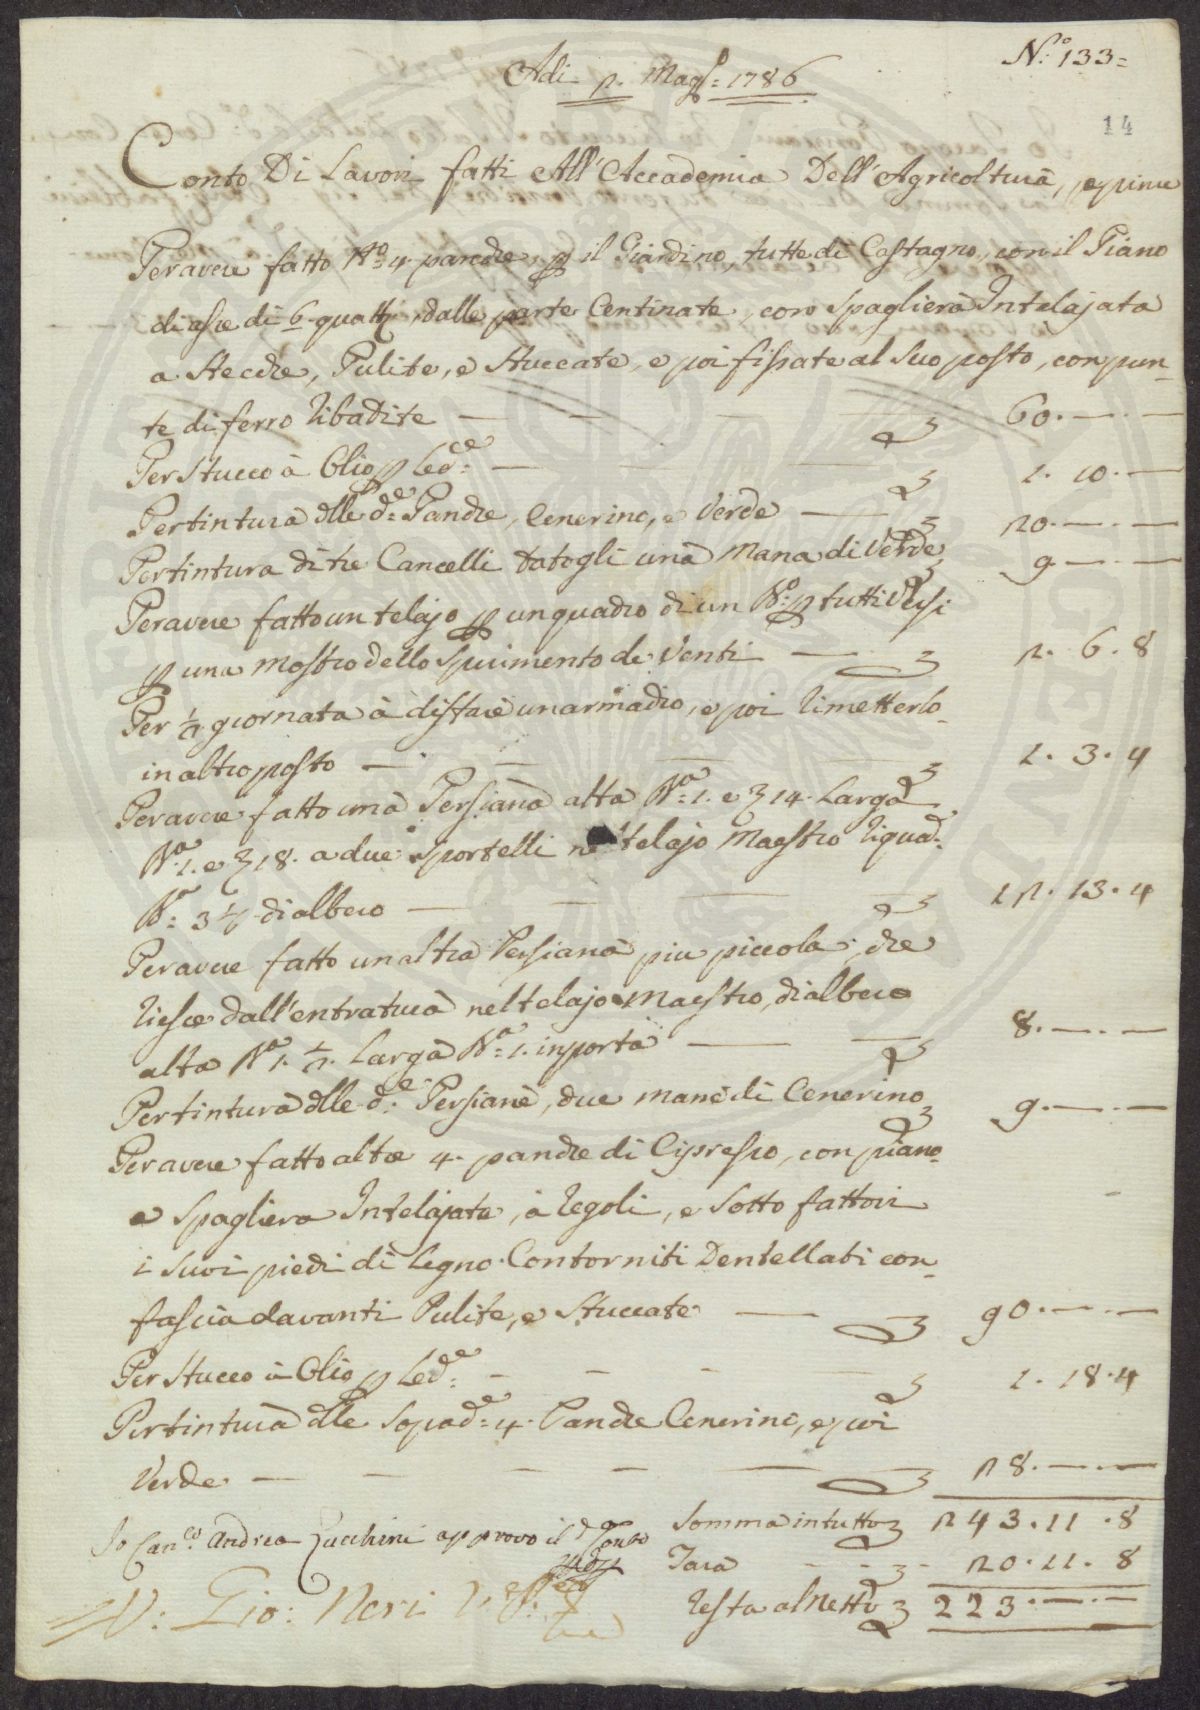 N.º 133=
Adi 2. Magº: 1786
14
Conto Di Lavori fatti All'Accademia Dell'Agricoltura, e prima
Per avere fatto Nº 4. panche, p il Giardino, tutte di Castagno, con il Piano
di asse di 6. quattri, dalle parte Centinate, con Spaglierà Intelajata
a Stecche, Pulite, e Stuccate, e poi fissate al Suo posto, con pun-
te di ferro Ribadite — 60. — . —
Per Stucco à Olio p Le dᵉ: — 1. 10. —
Per tintura dlle dᵉ: Panche, Cenerino, e Verde — 20. — . —
Per tintura di tre Cancelli datogli una Mana di Verde 9 — . —
Per avere fatto un telajo p un quadro di un Bº: p tutti Versi
p una Mostro dello Spirimento de Venti — 2. 6. 8
Per ½ giornata à disfare un armadio, e poi Rimetterlo
in altro posto — 1. 3. 4
Per avere fatto una Persiana alta Bª: 1. e 14. Larga
Bª: 1. e 18. a due Sportelli nel telajo Maestro Riquad:
Bª: 3 ½ di albero — 12. 13. 4
Per avere fatto un altra Persiana piu piccola, che
Riesce dall'entratura nel telajo Maestro, di albero
alta Bª 1. ½. Larga Bª: 1. inporta — 8. — . —
Per tintura dlle dᵉ: Persiane, due mane di Cenerino 9. — . —
Per avere fatto altre 4. panche di Cipresso, con piano
e Spagliera Intelajata, à Regoli, e Sotto fattovi
i Suoi piedi di Legno Contorniti Dentellati con
fascia davanti Pulite, e Stuccate — 90. — . —
Per Stucco à Olio p Le dᵉ: — 1. 18. 4
Per tintura dlle Sopadᵉ: 4. Panche Cenerine, e poi
Verde — 28. — . —
Somma in tutto 243. 11. 8
Io Canᶜᵒ Andrea Zucchini approvo il dº Conto
Tara — 20. 11. 8
V: Gio: Neri
Resta al Netto 223. — . —